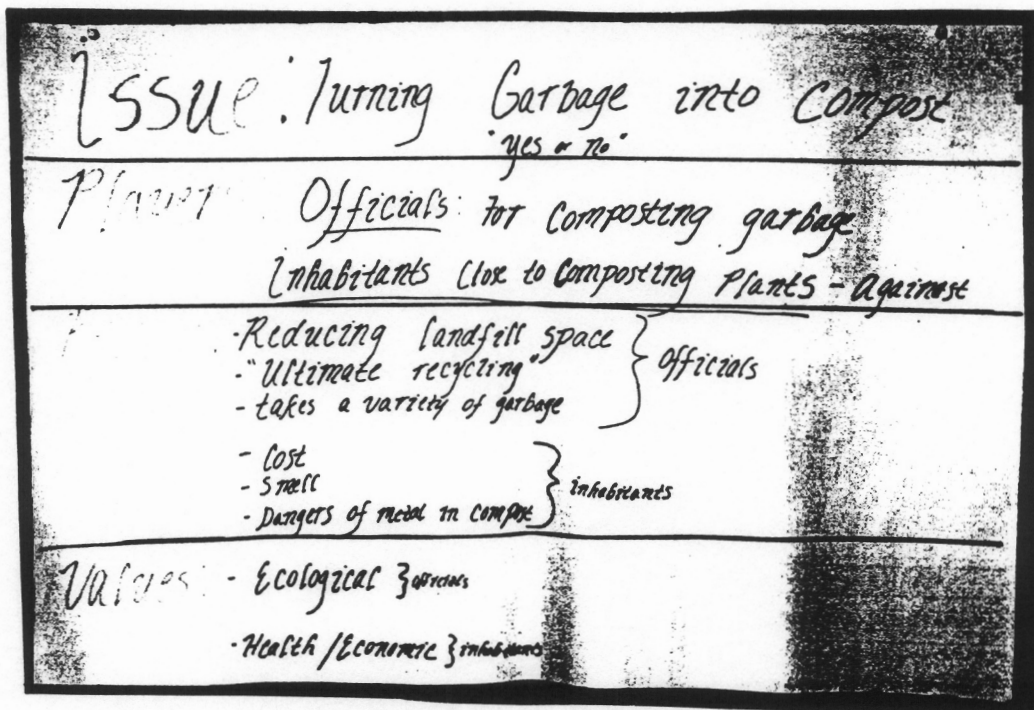 Issue: Turning Garbage into Compost
"yes or no"
Players
Officials: For composting garbage
Inhabitants Close to Composting Plants - Against
- Reducing landfill space
- "Ultimate recycling"
- takes a variety of garbage
Officials
- Cost
- Smell
- Dangers of metal in compost
inhabitants
Values: - Ecological } officials
- Health / Economic } inhabitants